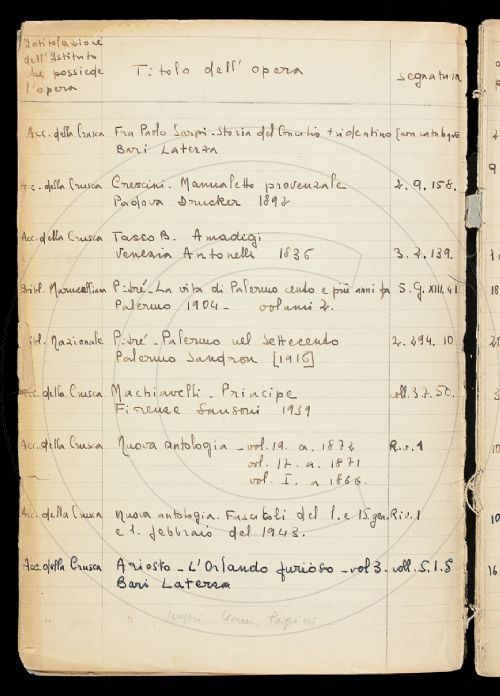 Intitolazione
dell'Istituto
che possiede
l'opera
Titolo dell'opera
segnatura
Acc. della Crusca Fra Paolo Sarpi - Storia del Concilio tridentino [non catalogato
Bari Laterza
Acc. della Crusca Crescini. Manualetto provenzale 2. 9. 158.
Padova Drucker 1892
Acc. della Crusca Tasso B. Amadigi
Venezia Antonelli 1836 3. 2. 139.
Bibl. Marucelliana Pitré - La vita di Palermo cento e più anni fa S. G. XIII. 41
Palermo 1904 - volumi 2.
Bibl. Nazionale Pitré - Palermo nel Settecento 2. 294. 10
Palermo Sandron [1916]
Acc. della Crusca Machiavelli - Principe coll. 3. 7. 50.
Firenze Sansoni 1939
Acc. della Crusca Nuova antologia - vol. 19. a. 1872 R.i.1
vol. 17. a. 1871
vol. I. a 1866.
Acc. della Crusca Nuova antologia. Fascicoli del 1. e 15 gen. R.i.1
e 1. febbraio del 1943.
Acc. della Crusca Ariosto - L'Orlando furioso - vol 3. coll. S. I. S
Bari Laterza